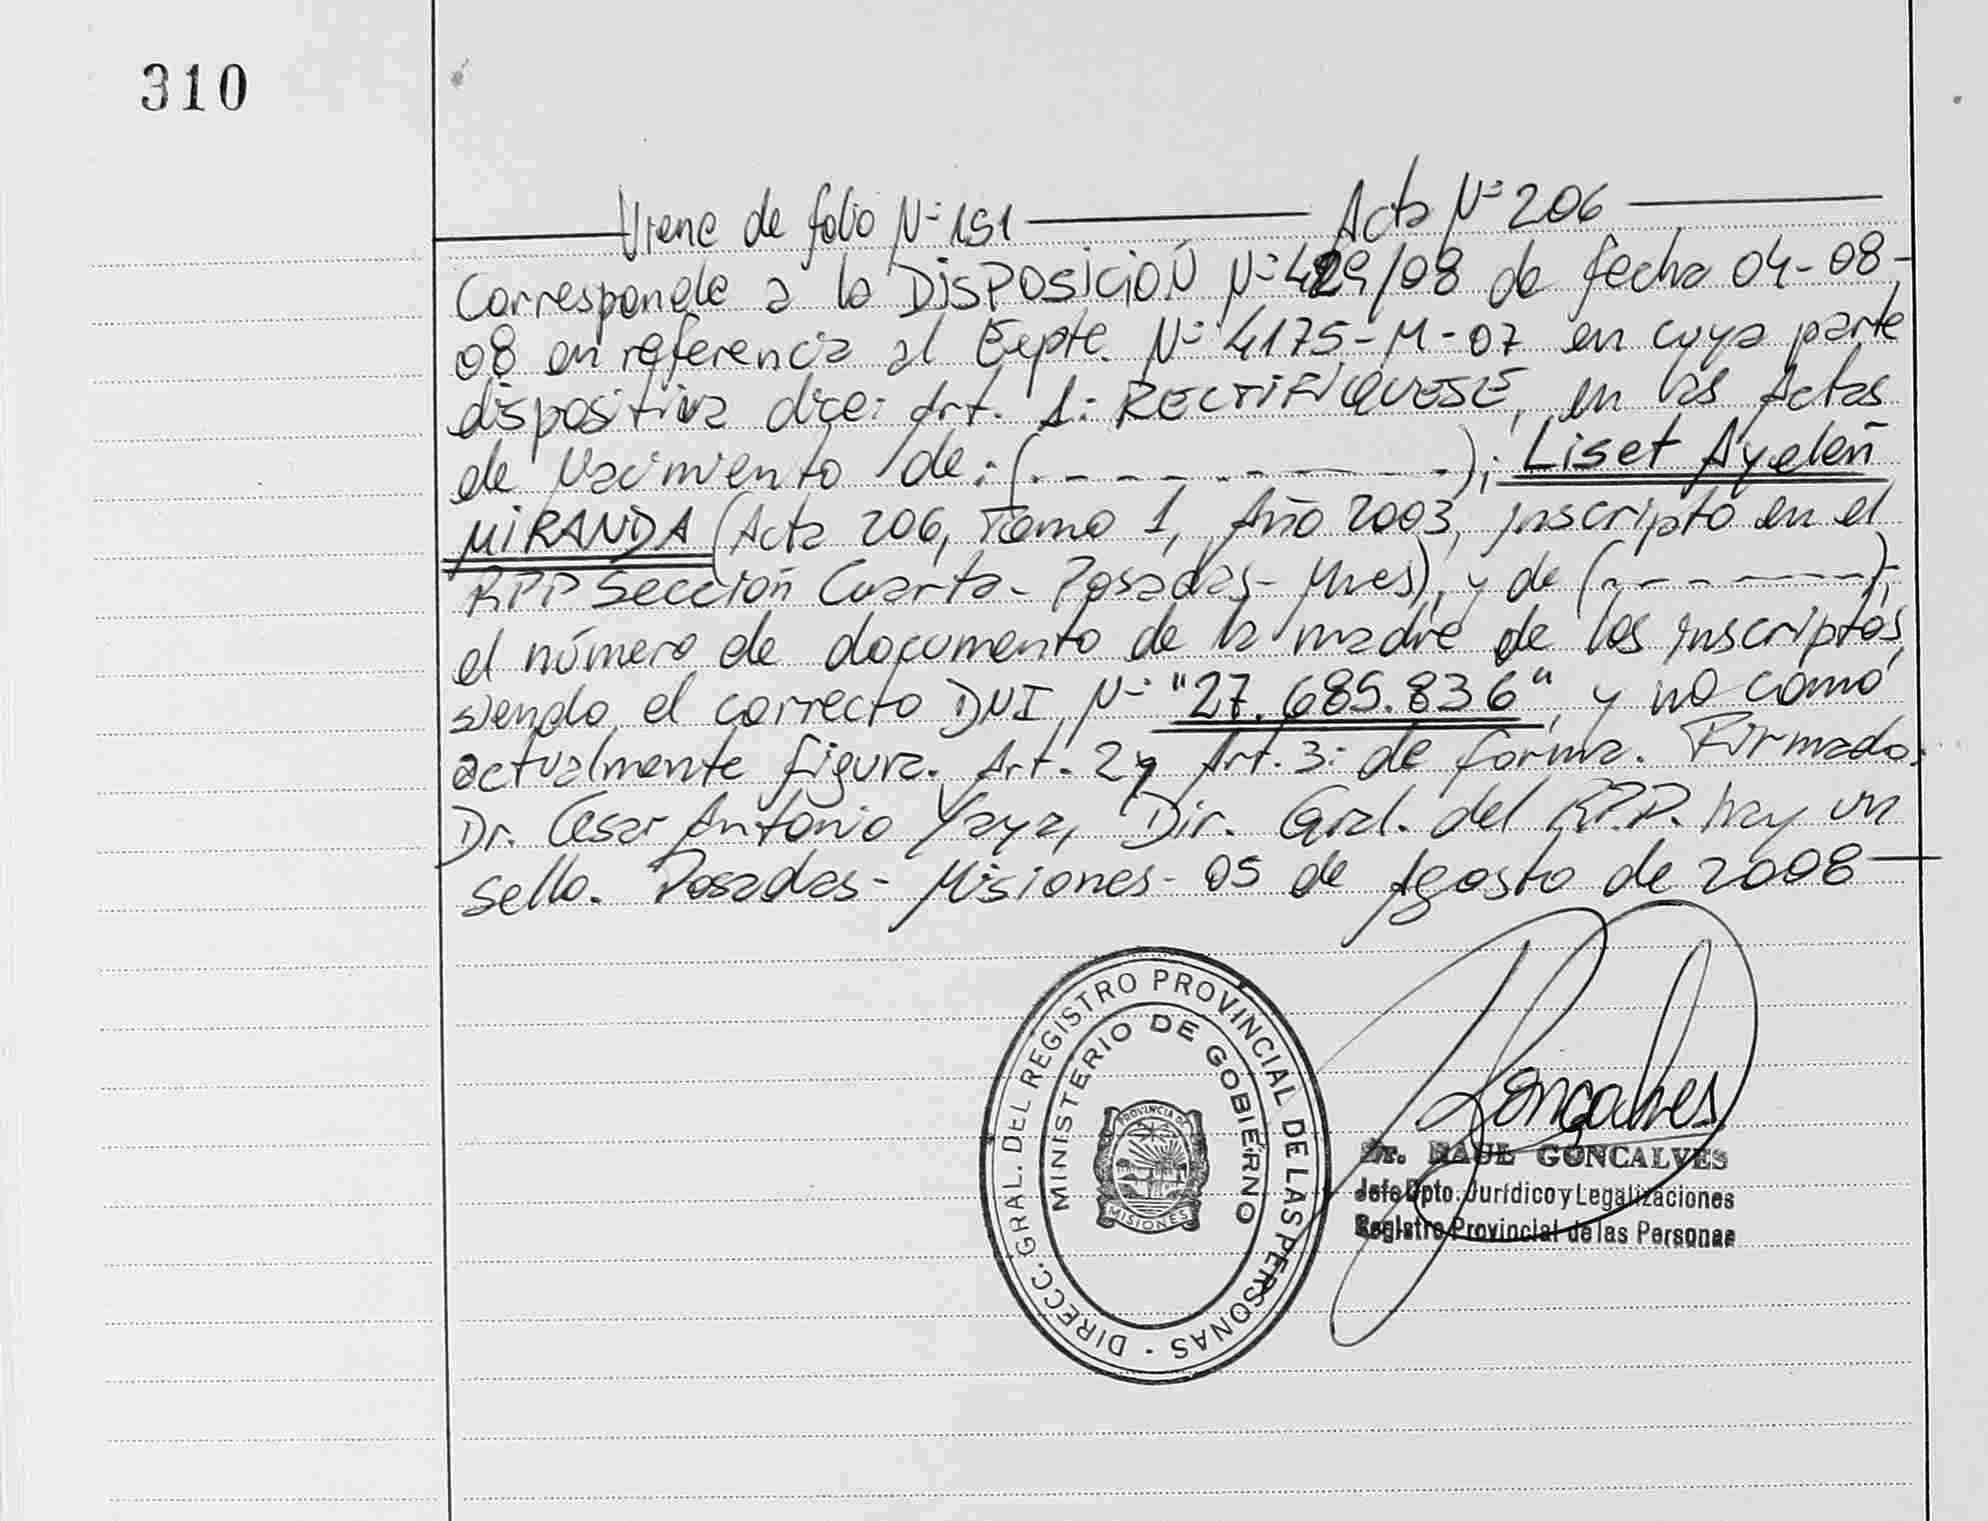 310
Viene de folio Nº 151 Acta Nº 206
Corresponde a la DISPOSICIÓN Nº 429/08 de fecha 04-08-
08 en referencia al Expte. Nº 4175-M-07 en cuya parte
dispositiva dice: Art. 1: RECTIFIQUESE, en las Actas
de Nacimiento de: (- - - - - - - - -); Liset Ayelén
MIRANDA (Acta 206, Tomo 1, Año 2003, inscripto en el
RPP Sección Cuarta- Posadas- Mnes), y de (- - - - - - -);
el número de documento de la madre de los inscriptos,
siendo el correcto DNI Nº "27.685.836", y no como
actualmente figura. Art. 2 y Art. 3: de forma. Firmado.
Dr. Cesar Antonio Yaya, Dir. Gral. del R.P.P. hay un
sello. Posadas- Misiones- 05 de Agosto de 2008
DIRECC. GRAL. DEL REGISTRO PROVINCIAL DE LAS PERSONAS -
MINISTERIO DE GOBIERNO
PROVINCIA DE
MISIONES
Goncalves
Dr. RAUL GONCALVES
Jefe Dpto. Jurídico y Legalizaciones
Registro Provincial de las Personas